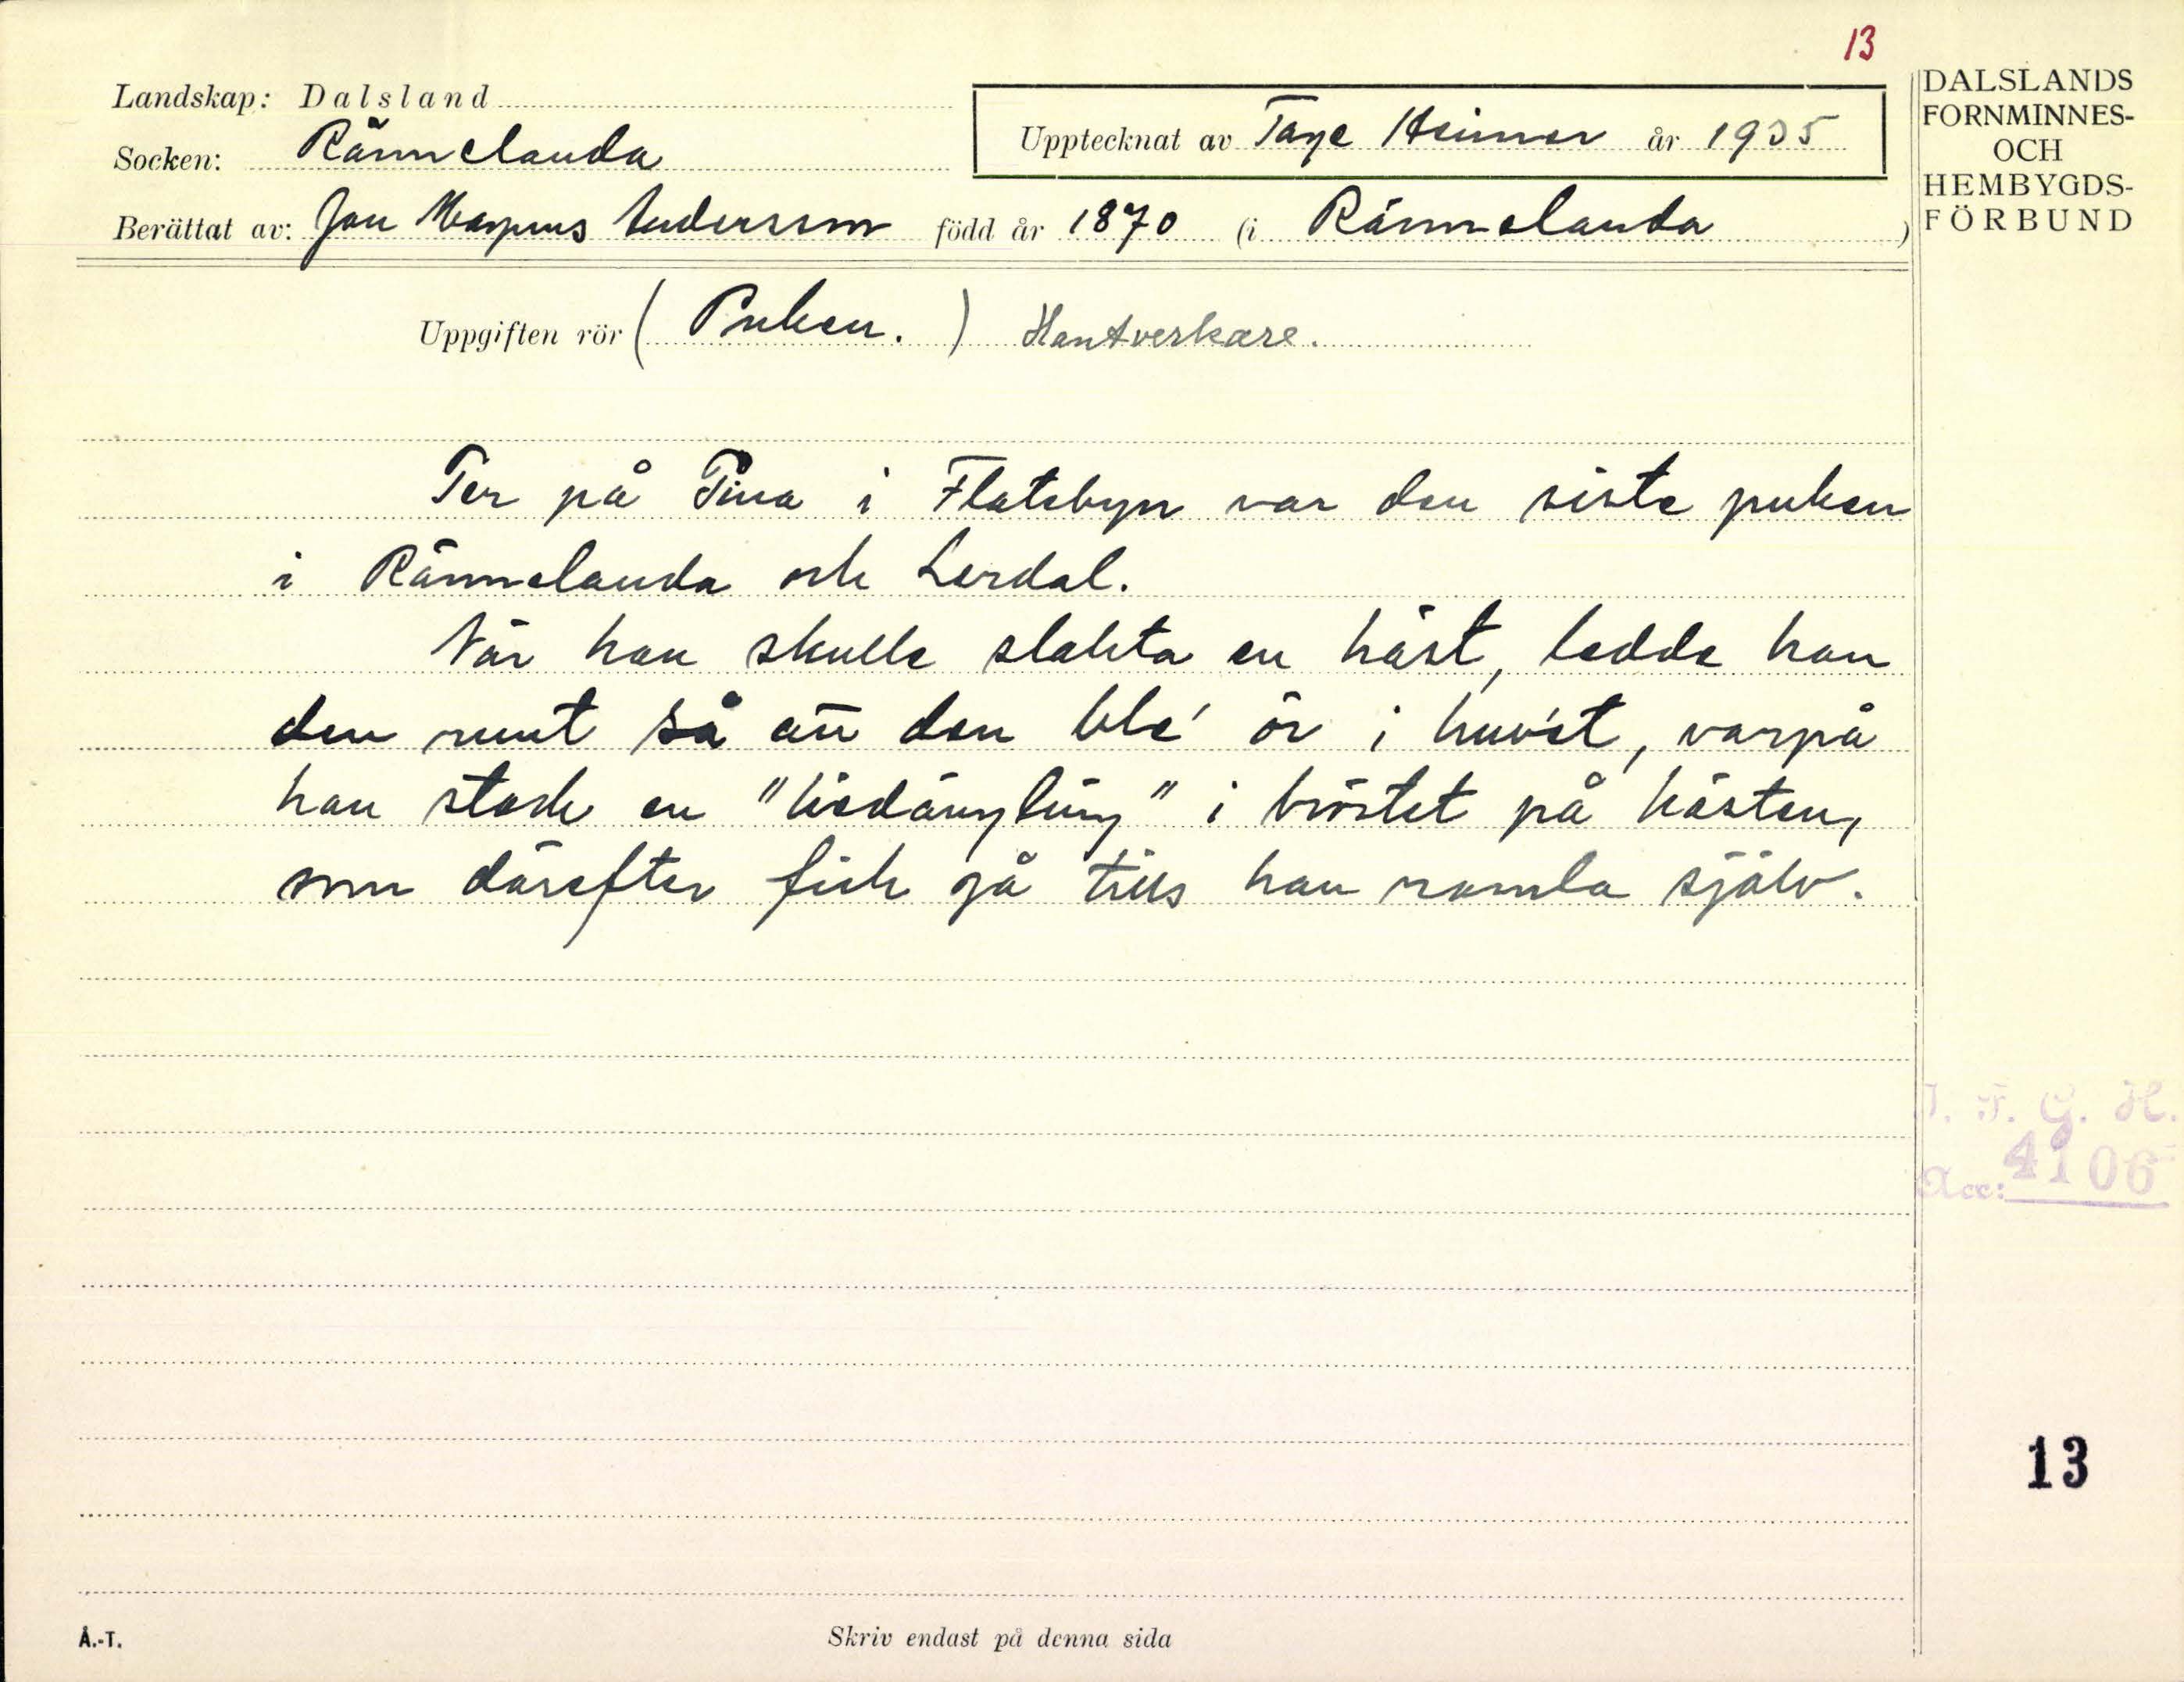 13
Landskap: Dalsland
Socken: Rännelanda
Upptecknat av Tage Heimer år 1935
Berättat av: Jan Magnus Andersson född år 1870 (i Rännelanda)
DALSLANDS
FORNMINNES-
OCH
HEMBYGDS-
FÖRBUND
Uppgiften rör (Puken.) Hantverkare.
Ter på Tina i Flatebyn var den siste puken
i Rännelanda och Lerdal.
När han skulle slakta en häst, ledde han
den runt så att den ble' ör i huv'et, varpå
han stack en "liedängling" i bröstet på hästen,
som därefter fick gå tills han ramla själv.
I. F. G. H.
Acc: 4106
13
Å.-T.
Skriv endast på denna sida